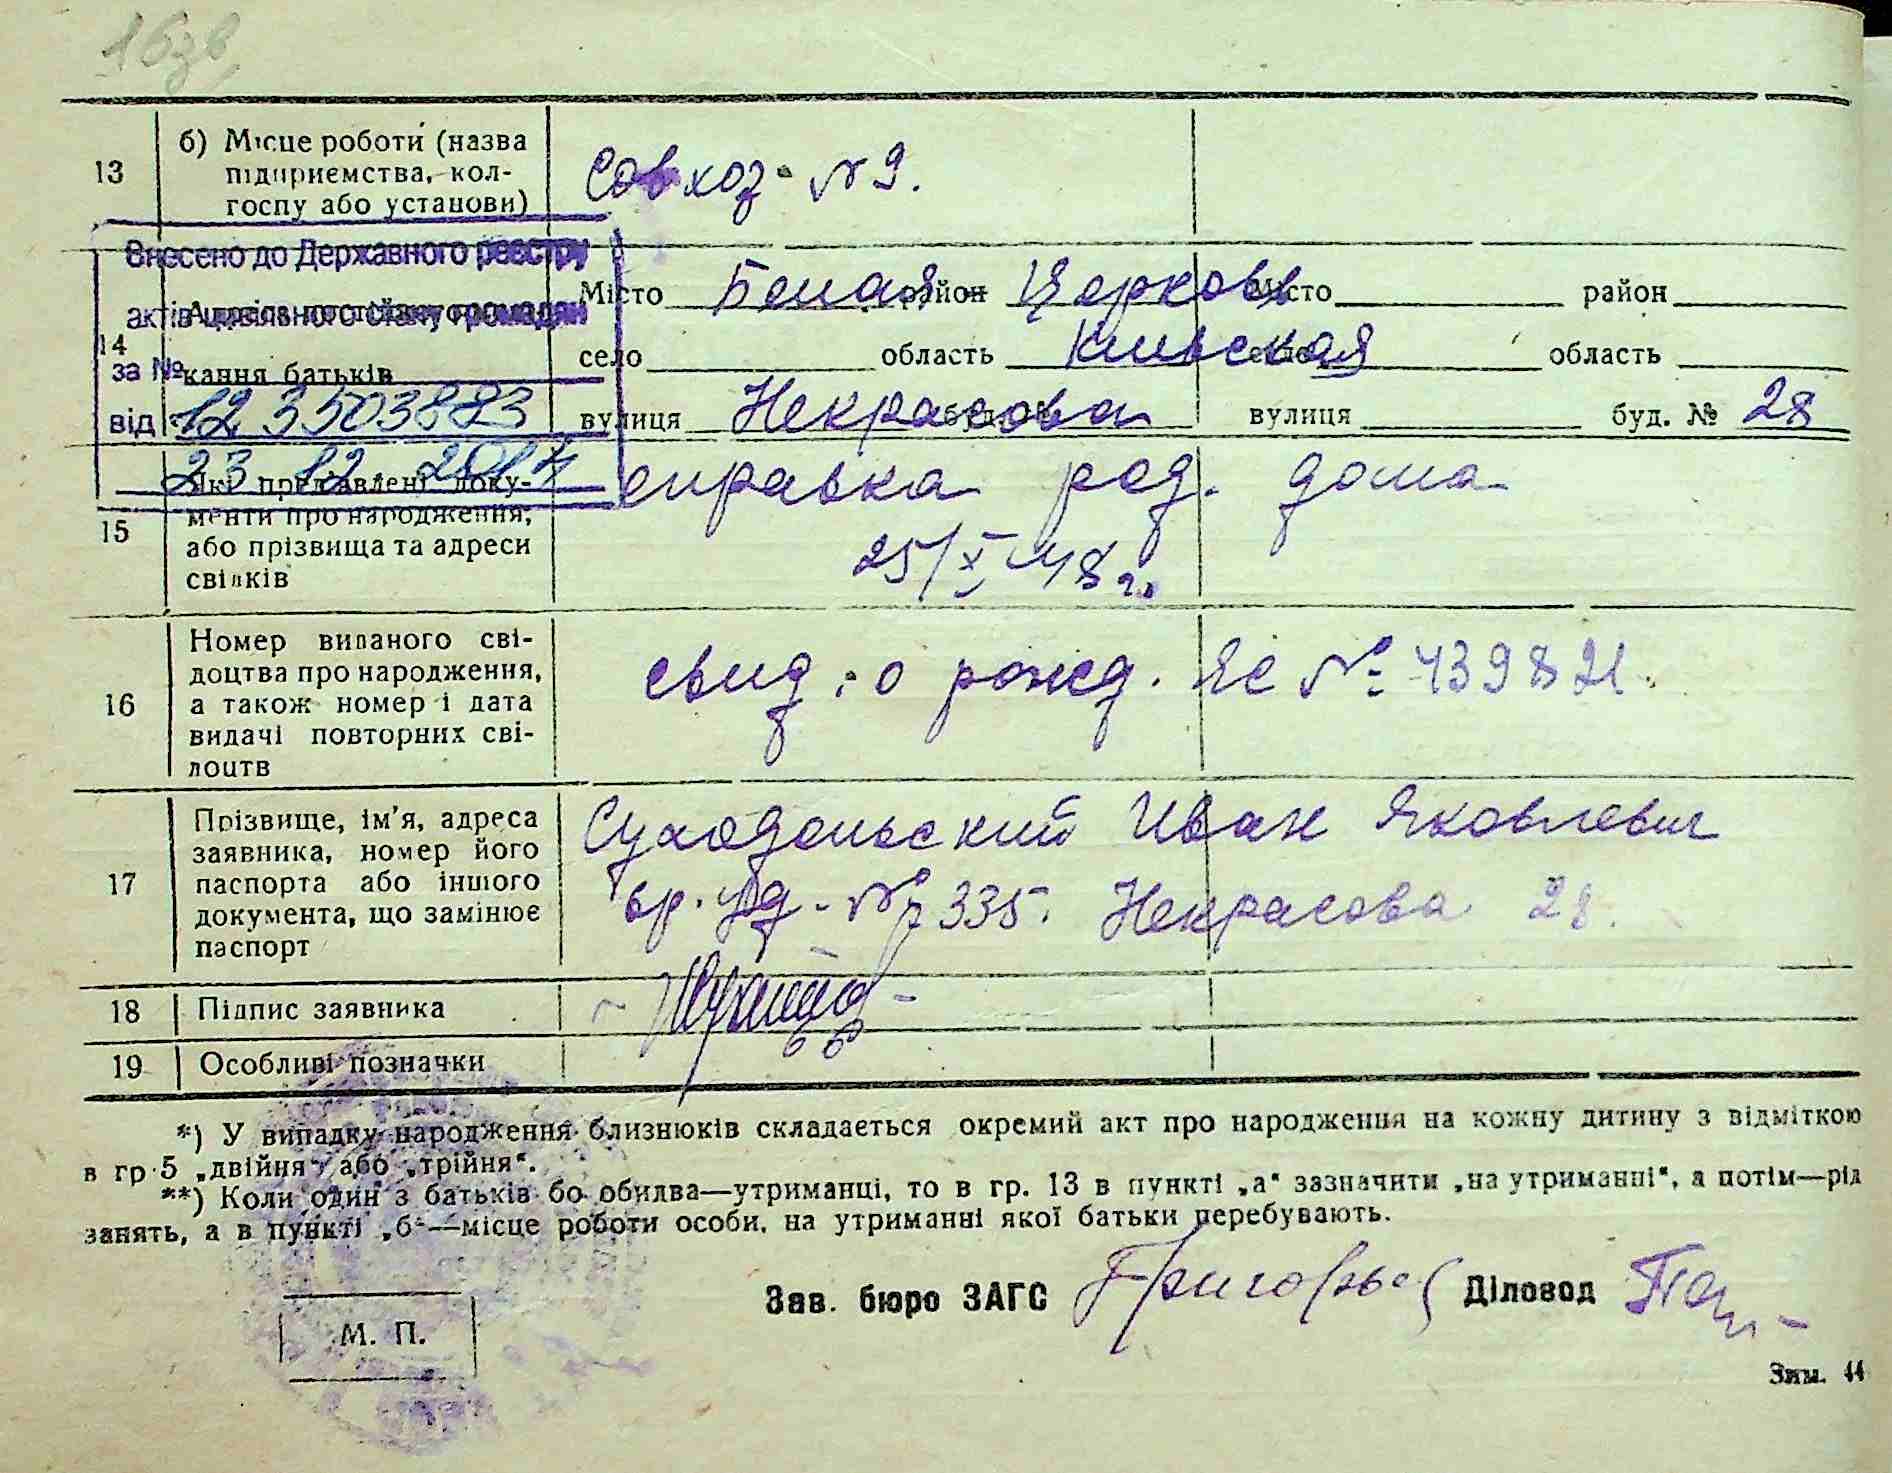 16зв
13
б) Місце роботи (назва
підприємства, кол-
госпу або установи)
Совхоз № 9.
Внесено до Державного реєстру
актів цивільного стану громадян
за №
від 12 3503883
23 12 2014
14
кання батьків
Місто Белая район Церковь
село область Киевская
вулиця Некрасова буд. №
Місто район
село область
вулиця буд. № 28
15
Які представлені доку-
менти про народження,
або прізвища та адреси
свідків
справка род. дома
25/X 48 г.
16
Номер виданого сві-
доцтва про народження,
а також номер і дата
видачі повторних сві-
доцтв
свид. о рожд. ЯС № 439821.
17
Прізвище, ім'я, адреса
заявника, номер його
паспорта або іншого
документа, що замінює
паспорт
Суходольский Иван Яковлевич
вр. уд. № 7335. Некрасова 28.
18
Підпис заявника
19
Особливі позначки
*) У випадку народження близнюків складається окремий акт про народження на кожну дитину з відміткою
в гр. 5 „двійня“ або „трійня“.
**) Коли один з батьків бо обидва—утриманці, то в гр. 13 в пункті „а“ зазначити „на утриманні“, а потім—рід
занять, а в пункті „б“—місце роботи особи, на утриманні якої батьки перебувають.
Зав. бюро ЗАГС Діловод
М. П.
Зам. 44